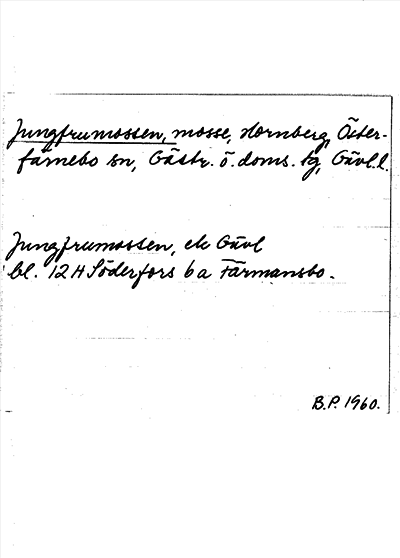 Jungfrumossen, mosse, Hornberg, Öster-
färnebo sn, Gästr. ö. doms. tg, Gävl. l.
Jungfrumossen, ek Gävl
bl. 12 H Söderfors 6 a Färmansbo.
B.P. 1960.